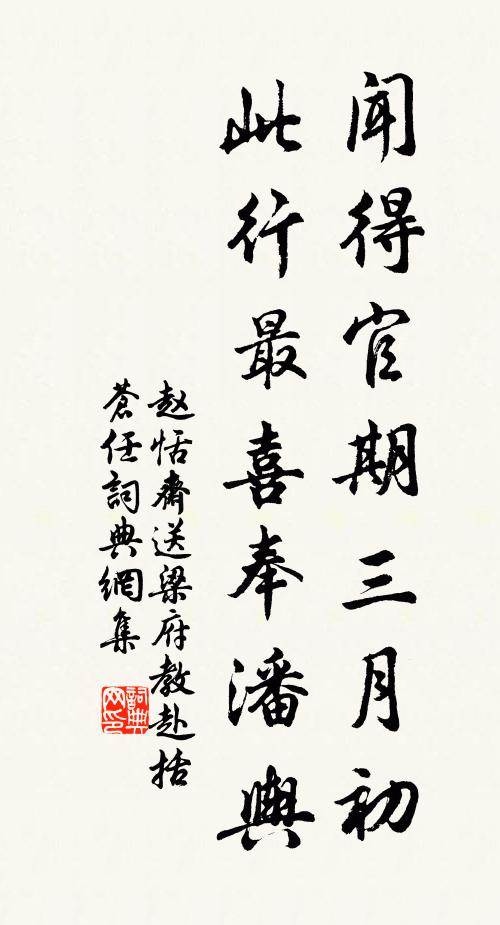 闻得官期三月初
此行最喜奉潘舆
赵恬斋送梁府教赴括
苍任词典網集
詞典
网印